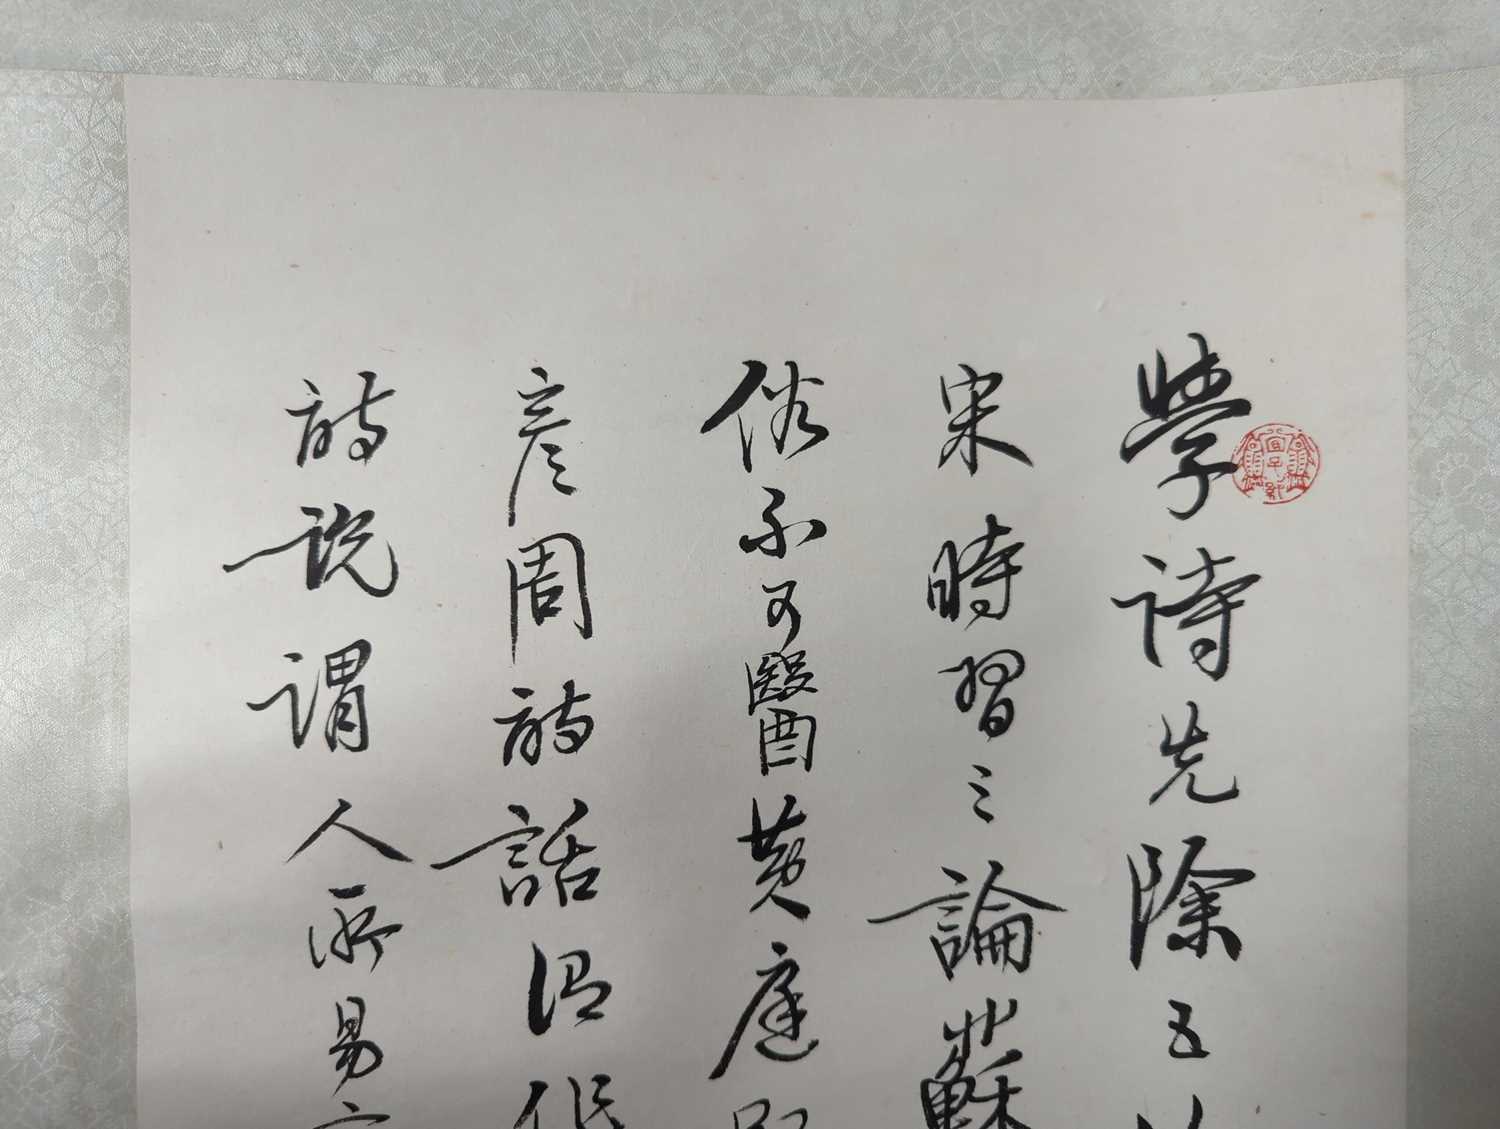 學詩先除五
宋時習之論蘇
俗不可醫黃庭
彥周詩話謂作
詩說謂人所易言